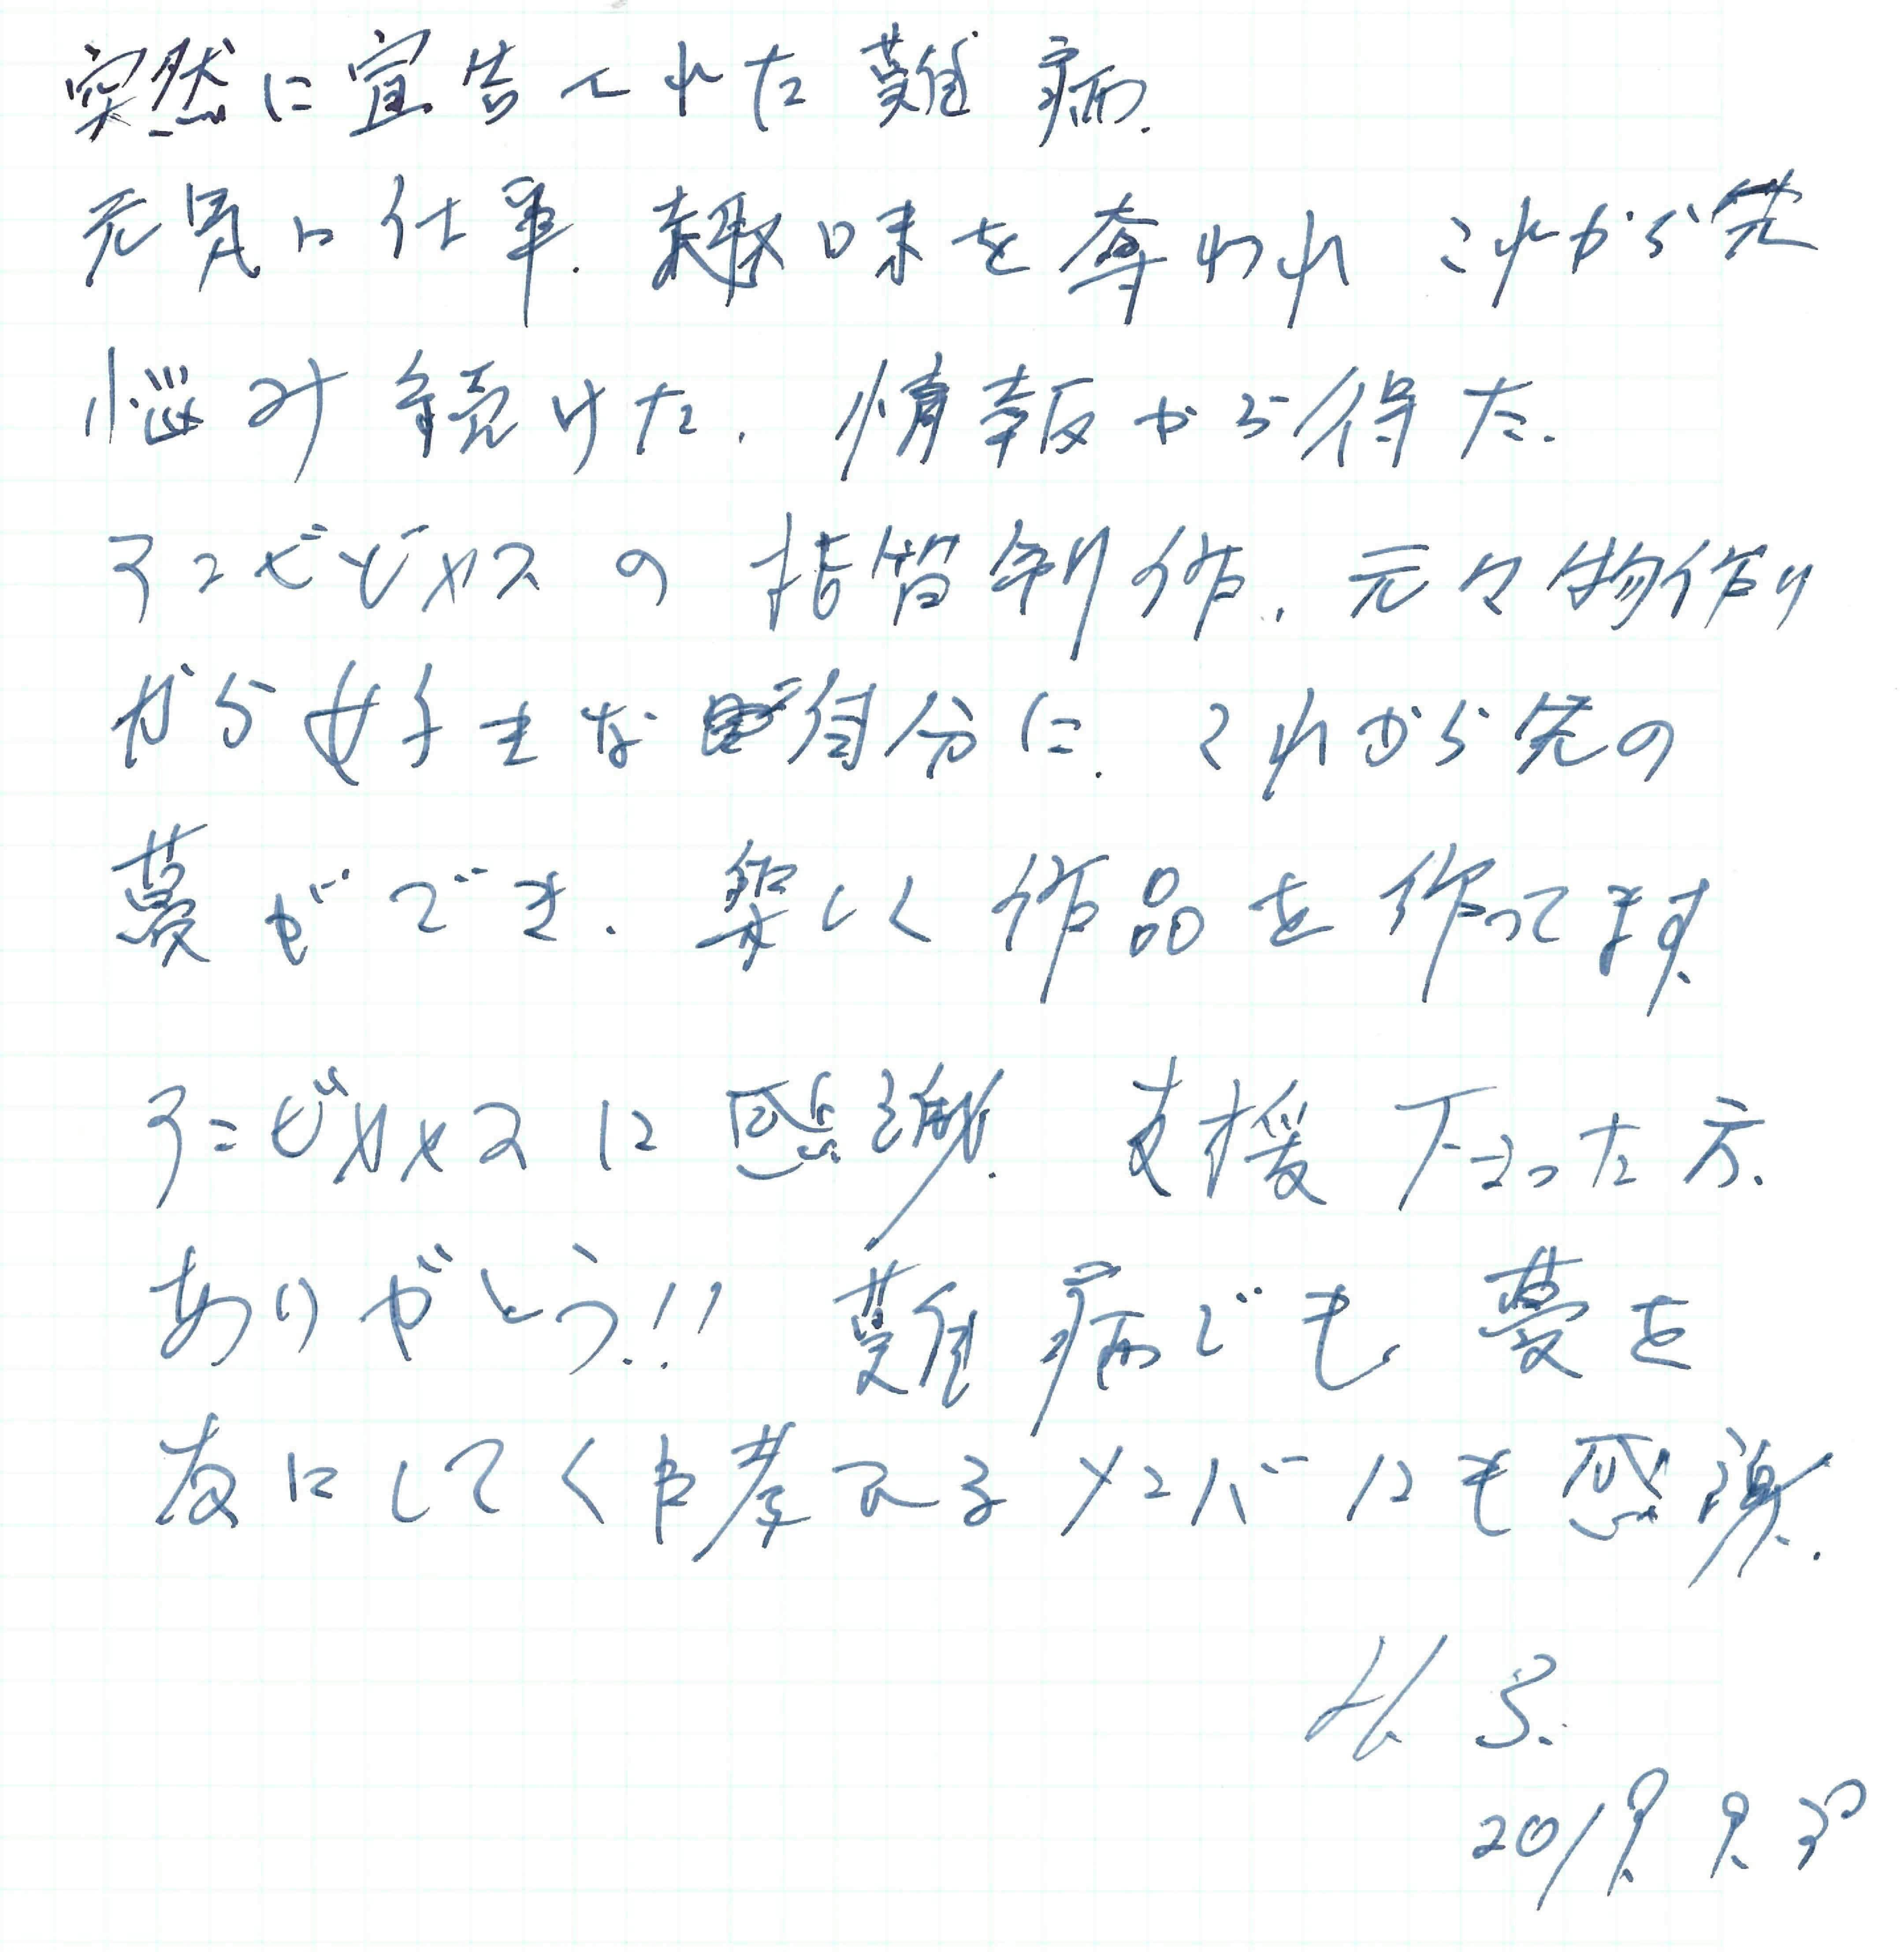 突然に宣告された難病.
元気に仕事.趣味を奪われ これから先
悩み続けた.情報から得た.
アンビシャスの 描笛制作.元々物作り
から好きな自分に.これから先の
夢ができ.楽しく作品を作ってます.
アンビシャスに感謝.支援下さった方.
ありがとう!! 難病でも夢を
友にしてくれてるメンバーにも感謝.
H. S.
2019. 9. 30